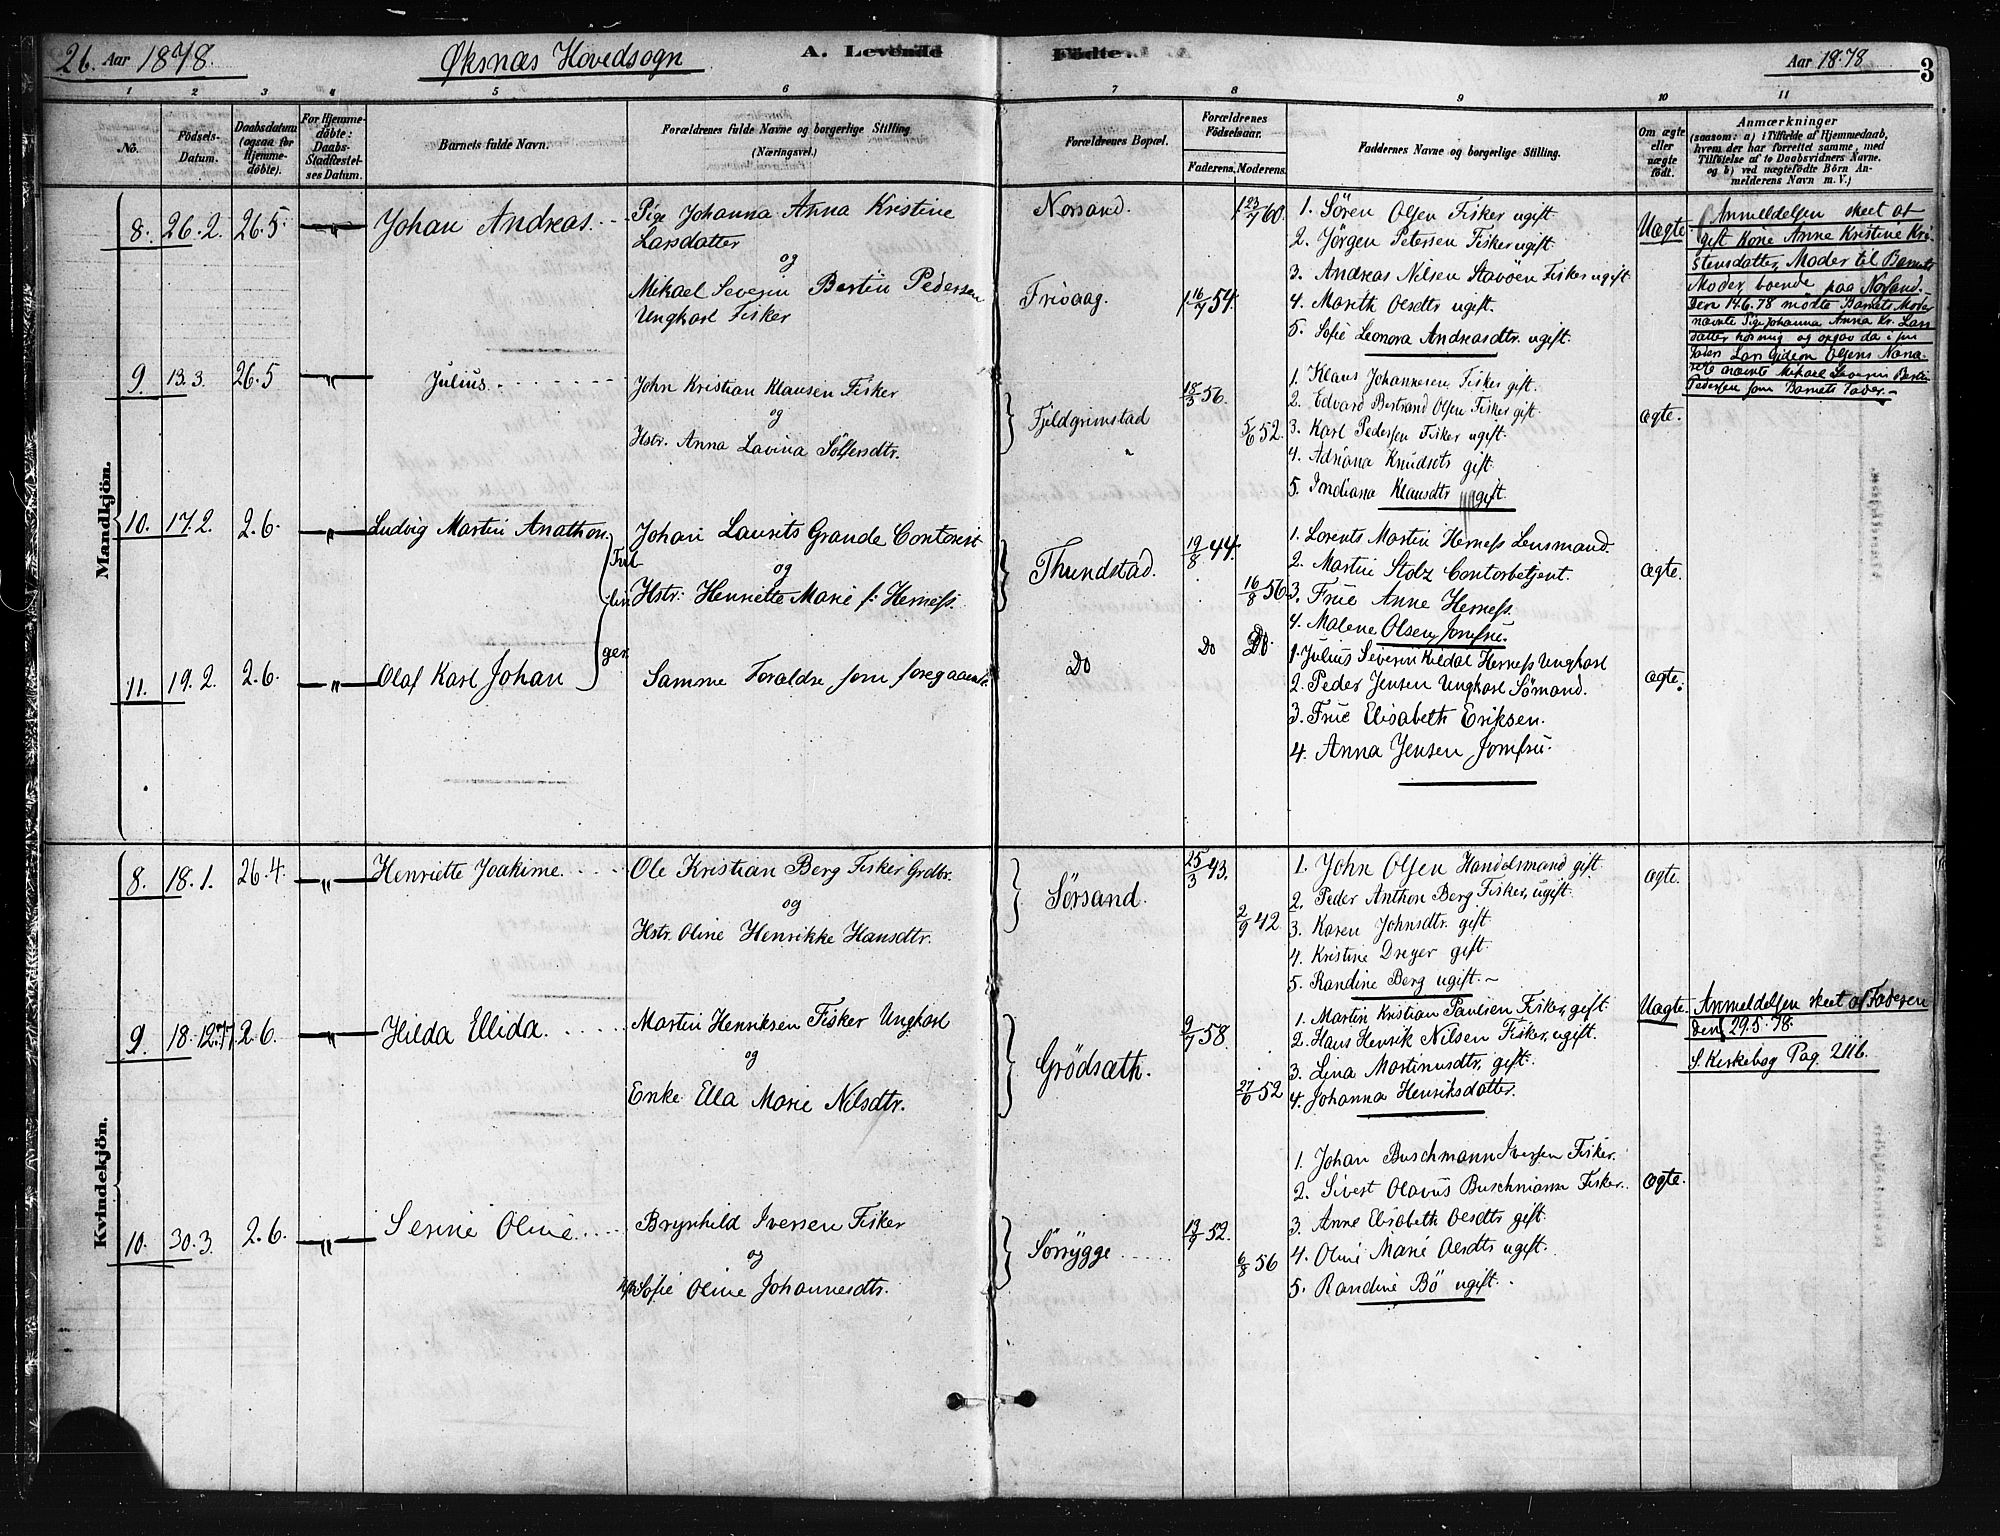 26. Aar 1878.
Øksnæs Hovedsogn
A. Levende Födte.
Aar 1878
3
1 2 3 4 5 6 7 8 9 10 11
No.
Födsels-Datum.
Daabsdatum (ogsaa for Hjemmedöbte).
For Hjemmedöbte: Daabs-Stadfæstelses Datum.
Barnets fulde Navn.
Forældrenes fulde Navne og borgerlige Stilling (Næringsvei.)
Forældrenes Bopæl.
Forældrenes Födselsaar.
Faderens. Moderens.
Faddernes Navne og borgerlige Stilling.
Om ægte eller uægte födt.
Anmærkninger
(saasom: a) i Tilfælde af Hjemmedaab, hvem der har forrettet samme, med Tilföielse af to Daabsvidners Navne. og b) ved uægtefödte Börn Anmelderens Navn m. V.)
Mandkjön.
8. 26.2. 26.5. —"— Johan Andreas.
Pige Johanna Anna Kristine
Larsdatter
og
Mikael Severin Bertin Pedersen
Ungkarl Fisker
Norsand.
Frisaag.
23/7 60
16/7 54.
1. Sören Olsen Fisker ugift
2. Jörgen Petersen Fisker ugift
3. Andreas Nilsen Stavöen Fisker ugift
4. Mareth Olsdtr ugift.
5. Sofie Leonora Andreasdtr. ugift.
Uægte
Anmeldelsen skeet af
gift Kone Anne Kristine Kri-
stensdatter, Moder til Barnets
Moder, boende paa Norsand.
Den 14.6.78 mödte Barnets Moder
nævnte Pige Johanna Anna Kr. Lars
datter hos mig og opgav da i sin
Faders Lars Gideon Olsens Nærvæ-
relse nævnte Mikael Severin Bertin
Pedersen som Barnets Fader.—
9 13.3. 26.5 —"— Julius.
John Kristian Klausen Fisker
og
Hstr. Anna Lavina Sölfersdtr.
Fjeldgrimstad
"
18/3 56.
5/6 52.
1. Klaus Johannesen Fisker gift.
2. Edvard Bertrand Olsen Fisker gift.
3. Karl Pedersen Fisker ugift.
4. Adriana Knudsdtr gift.
5. Indiana Klausdtr ugift.
ægte.
10. 17.2. 2.6. —"— Ludvig Martin Anathon.
Tvil-
lin-
ger
Johan Laurits Grande Contorist
og
Hstr: Henriette Marie f: Herness.
Thundstad.
19/8 44.
16/8 56
1. Lorents Martin Herness Lensmand.
2. Martin Stolz Contorbetjent.
3. Frue Anne Herness.
4. Malene Olsen Jomfru.
ægte.
11. 19.2. 2.6. —"— Olaf Karl Johan
Samme Foraldre som foregaaende.
Do
Do Do.
1. Julius Severin Kildal Herness Ungkarl
2. Peder Jensen Ungkarl Sömand.
3. Frue Elisabeth Eriksen.
4. Anna Jensen Jomfru.
ægte.
Kvindekjön.
8. 18.1. 26.4. —"— Henriette Joakime.
Ole Kristian Berg Fisker Grdbr.
og
Hstr. Oline Henrikke Hansdtr.
Sörsand.
25/3 43.
2/9 42
1. John Olsen Handelsmand gift
2. Peder Anthon Berg Fisker, ugift.
3. Karen Johnsdtr. gift
4. Kristine Dreyer gift.
5. Randine Berg ugift.—
ægte.
9. 18.12.77. 2.6. —"— Hilda Ellida.
Martin Henriksen Fisker Ungkarl
og
Enke Ella Marie Nilsdtr.
Grödsæth.
9/7 58.
27/6 52
1. Martin Kristian Paulsen Fisker, gift.
2. Hans Henrik Nilsen Fisker, ugift.
3. Lina Martinusdtr, gift.
4. Johanna Henriksdatter.
Uægte.
Anmeldelsen skeet af Faderen
den 29.5.78.
S. Kirkebog Pag. 211b.
10. 30.3. 2.6. —"— Serine Oline
Brynhild Iversen Fisker
og
Sofie Oline Johannesdtr.
Sörrygge
13/9 52.
6/8 56
1. Johan Buschmann Iversen Fisker.
2. Sivert Olavus Buschmann Fisker.
3. Anne Elisabeth Olsdtr gift.
4. Oline Marie Olsdtr ugift.
5. Randine Bö ugift.
ægte.